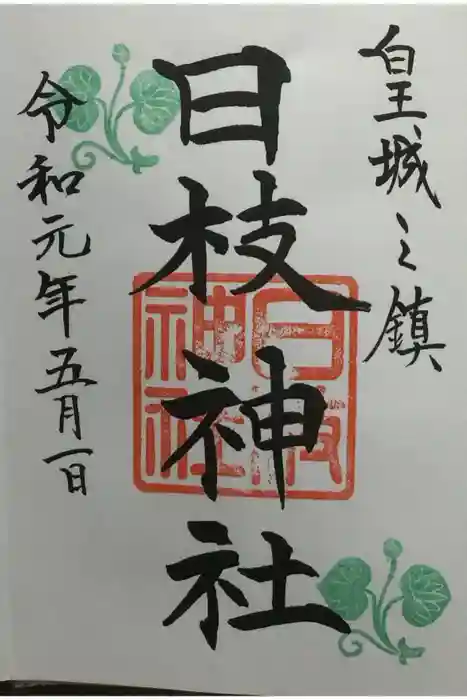 皇城之鎮
日枝神社
日枝神社
令和元年五月一日